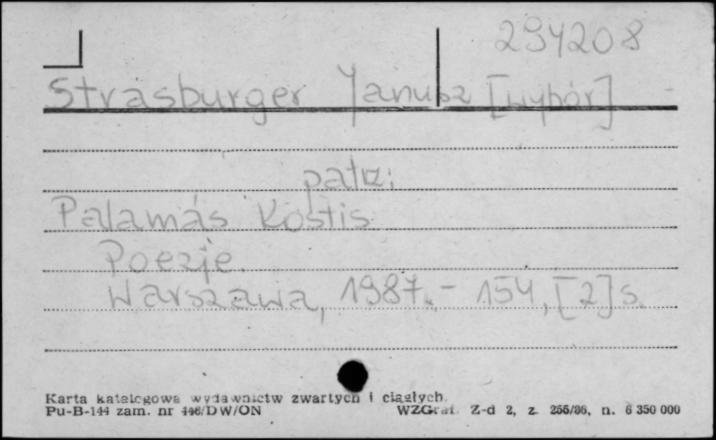 294208
Strasburger Janusz [wybór]
patrz:
Palamás Kostis
Poezje.
Warszawa, 1987. - 154, [2] s.
Karta katalogowa wydawnictw zwartych i ciągłych.
Pu-B-144 zam. nr 446/DW/ON WZGraf. Z-d 2, z. 255/86, n. 6 350 000